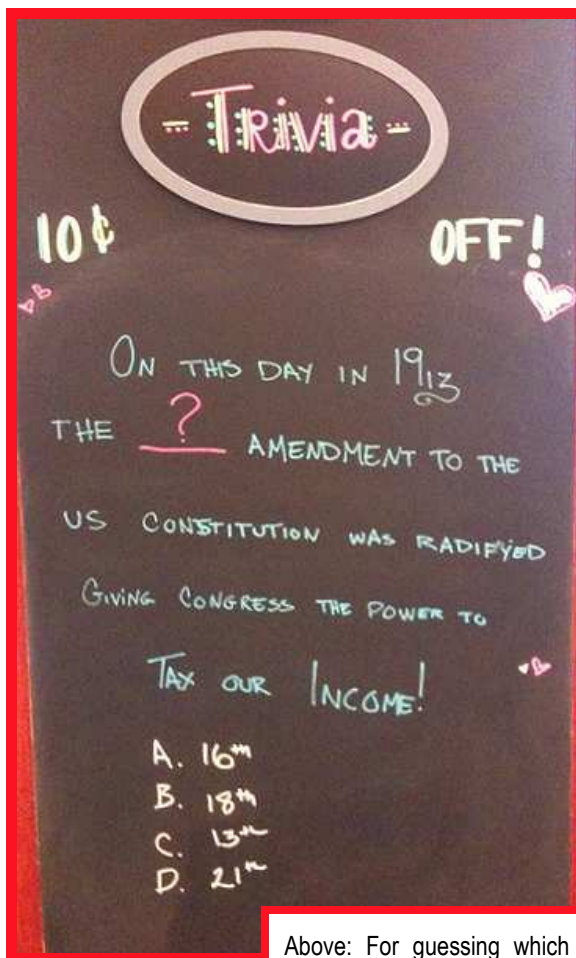 - Trivia -
10¢ OFF!
ON THIS DAY IN 1913
THE ? AMENDMENT TO THE
US CONSTITUTION WAS RADIFYED
GIVING CONGRESS THE POWER TO
TAX OUR INCOME!
A. 16th
B. 18th
C. 13th
D. 21th
Above: For guessing which